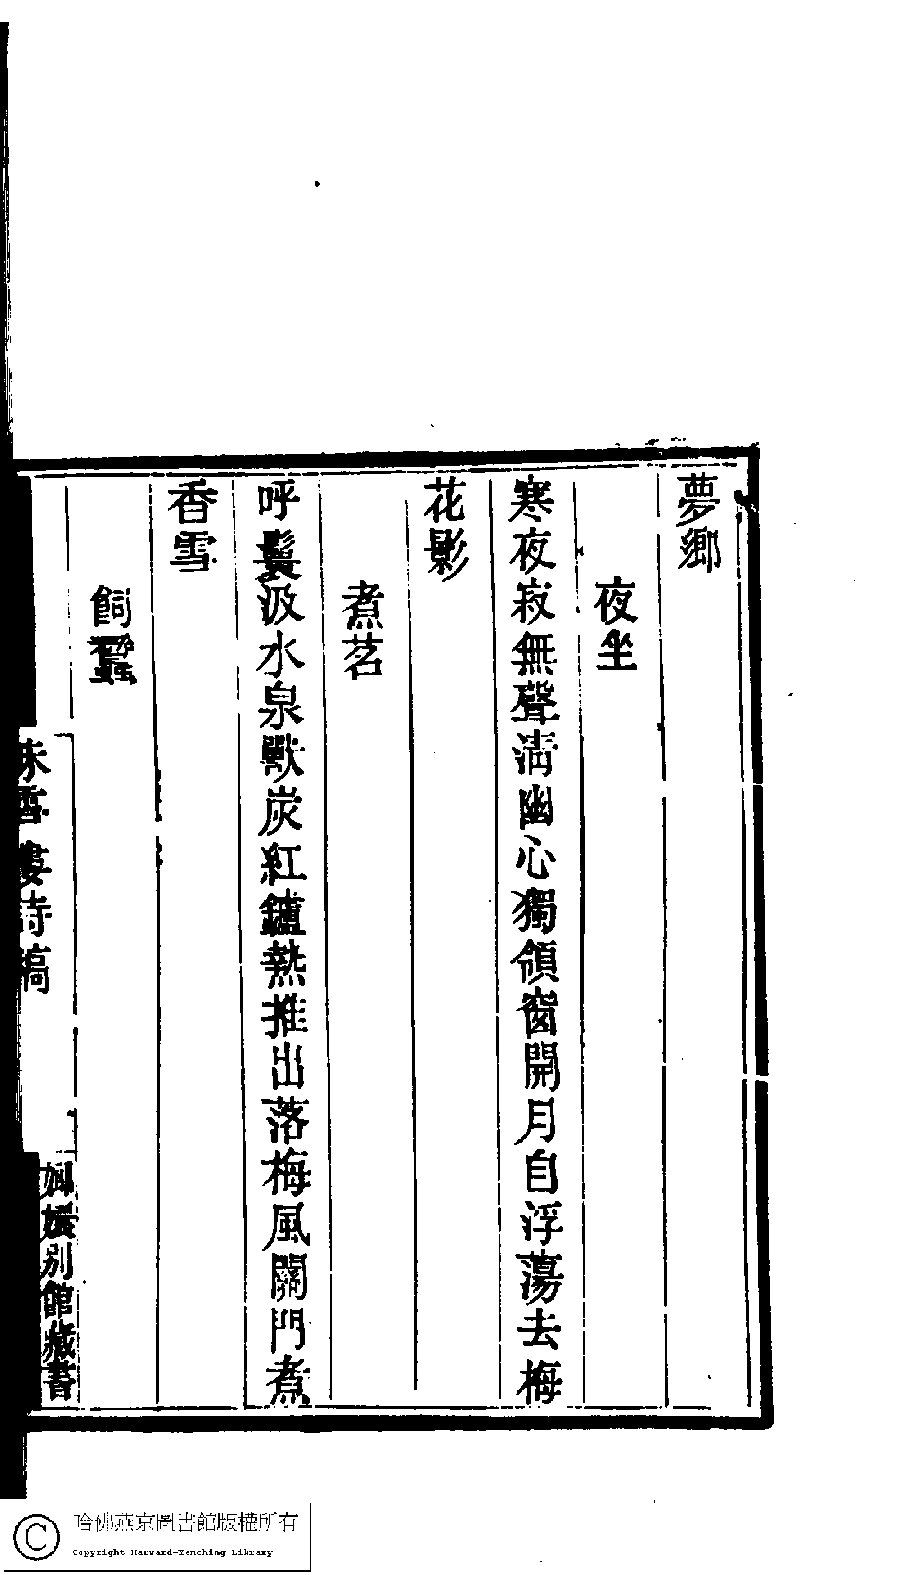 夢鄉
夜坐
寒夜寂無聲清幽心獨領窗開月自浮蕩去梅
花影
煮茗
呼鬟汲水泉獸炭紅鑪熱推出落梅風關門煮
香雪
飼蠶
詩稿
嫏嬛別館藏書
哈佛燕京圖書館版權所有
Copyright Harvard-Yenching Library